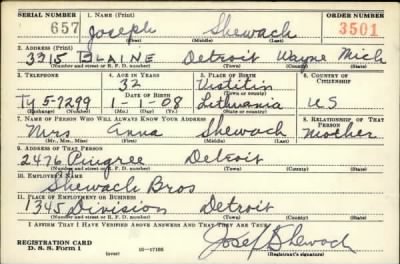 SERIAL NUMBER 1. NAME (Print) ORDER NUMBER
657 Joseph Shewach 3501
(First) (Middle) (Last)
2. ADDRESS (Print)
3315 BLAINE Detroit Wayne Mich
(Number and street or R. F. D. number) (Town) (County) (State)
3. TELEPHONE 4. AGE IN YEARS 5. PLACE OF BIRTH 6. COUNTRY OF CITIZENSHIP
32
DATE OF BIRTH (Town or county)
Ty 5-7299 1-1-08 Lithuania US
(Exchange) (Number) (Mo.) (Day) (Yr.) (State or country)
7. NAME OF PERSON WHO WILL ALWAYS KNOW YOUR ADDRESS 8. RELATIONSHIP OF THAT PERSON
Mrs Anna Shewach Mother
(Mr., Mrs., Miss) (First) (Middle) (Last)
9. ADDRESS OF THAT PERSON
2476 Pingree Detroit
(Number and street or R. F. D. number) (Town) (County) (State)
10. EMPLOYER'S NAME
Shewach Bros
11. PLACE OF EMPLOYMENT OR BUSINESS
1345 Division Detroit
(Number and street or R. F. D. number) (Town) (County) (State)
I AFFIRM THAT I HAVE VERIFIED ABOVE ANSWERS AND THAT THEY ARE TRUE.
REGISTRATION CARD
D. S. S. Form 1 (over) Josef Shewach
(Registrant's signature)